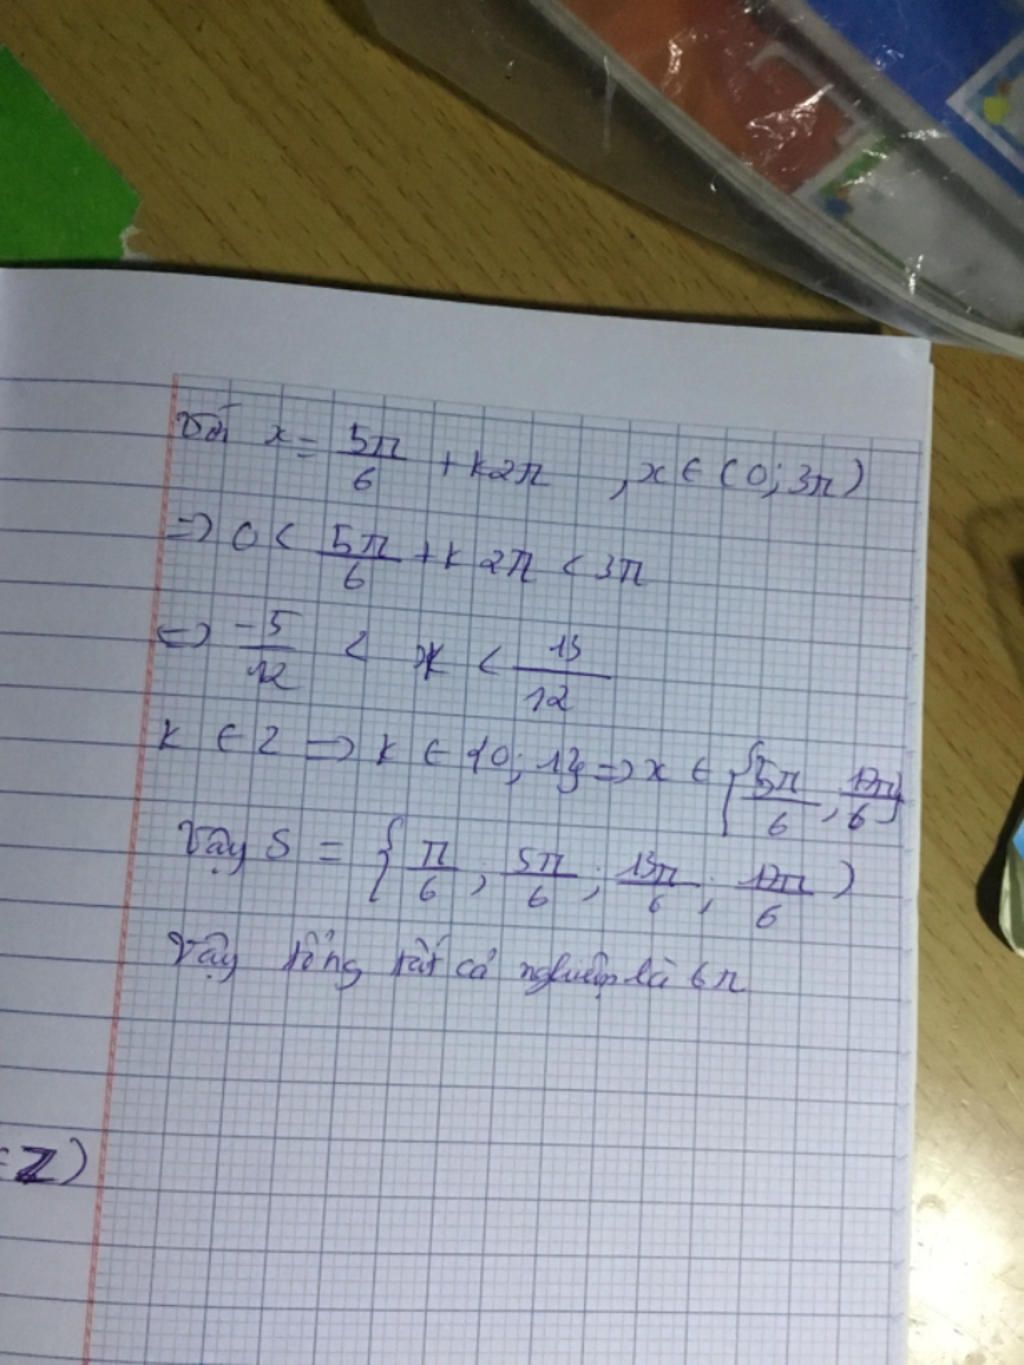 Với x = 5π/6 + k2π , x ∈ (0; 3π)
=> 0 < 5π/6 + k2π < 3π
<=> -5/12 < k < 13/12
k ∈ Z => k ∈ {0; 1} => x ∈ {5π/6, 17π/6}
Vậy S = { π/6 ; 5π/6 ; 13π/6 ; 17π/6 )
Vậy tổng tất cả nghiệm là 6π
∈ Z)